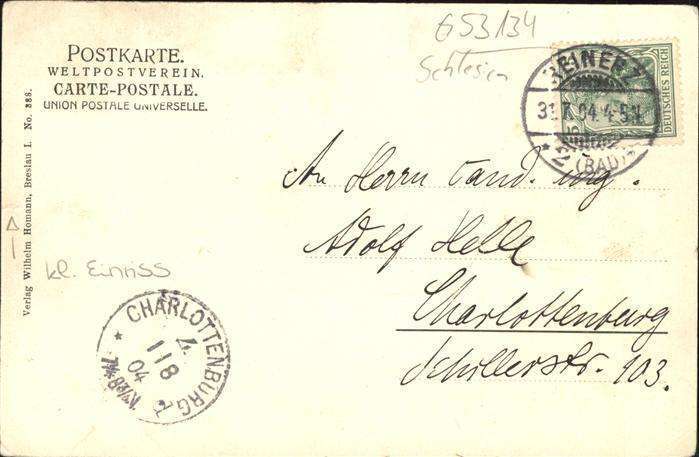 G53134
Schlesien
POSTKARTE.
WELTPOSTVEREIN.
CARTE-POSTALE.
UNION POSTALE UNIVERSELLE.
REINERZ
31.7.04.4-5N.
(BAD)
DEUTSCHES REICH
Verlag Wilhelm Homann, Breslau I. No. 388.
An Herrn Cand. ing.
Adolf Helle
Charlottenburg
Schillerstr. 103.
kl. Einriss
CHARLOTTENBURG
1
1 8
04